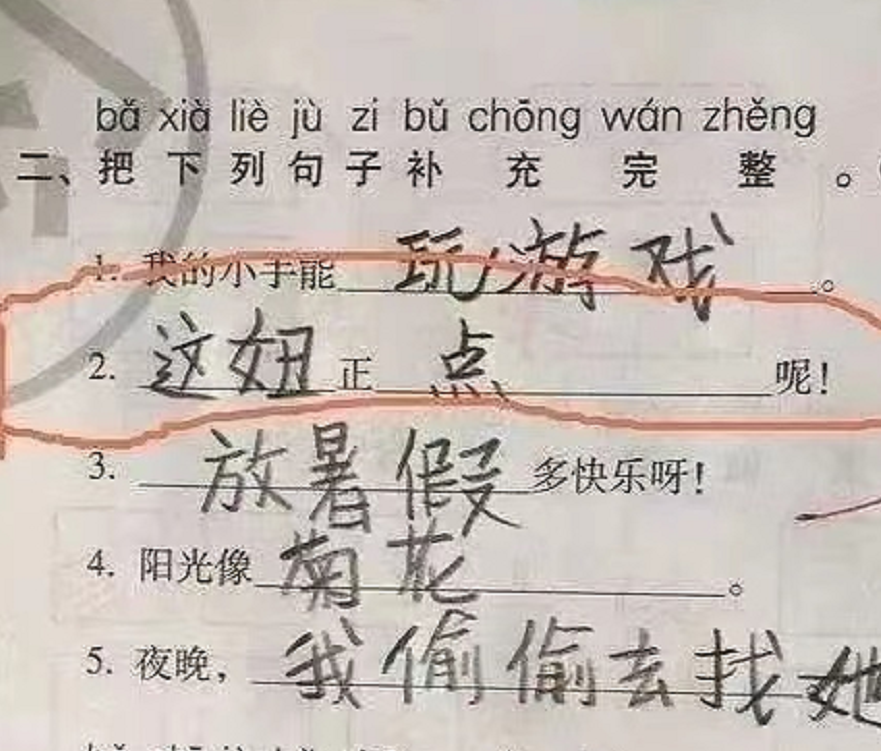 bǎ xià liè jù zi bǔ chōng wán zhěng
二、把下列句子补充完整。
1. 我的小手能玩游戏。
2. 这妞正点呢!
3. 放暑假多快乐呀!
4. 阳光像菊花。
5. 夜晚,我偷偷去找她